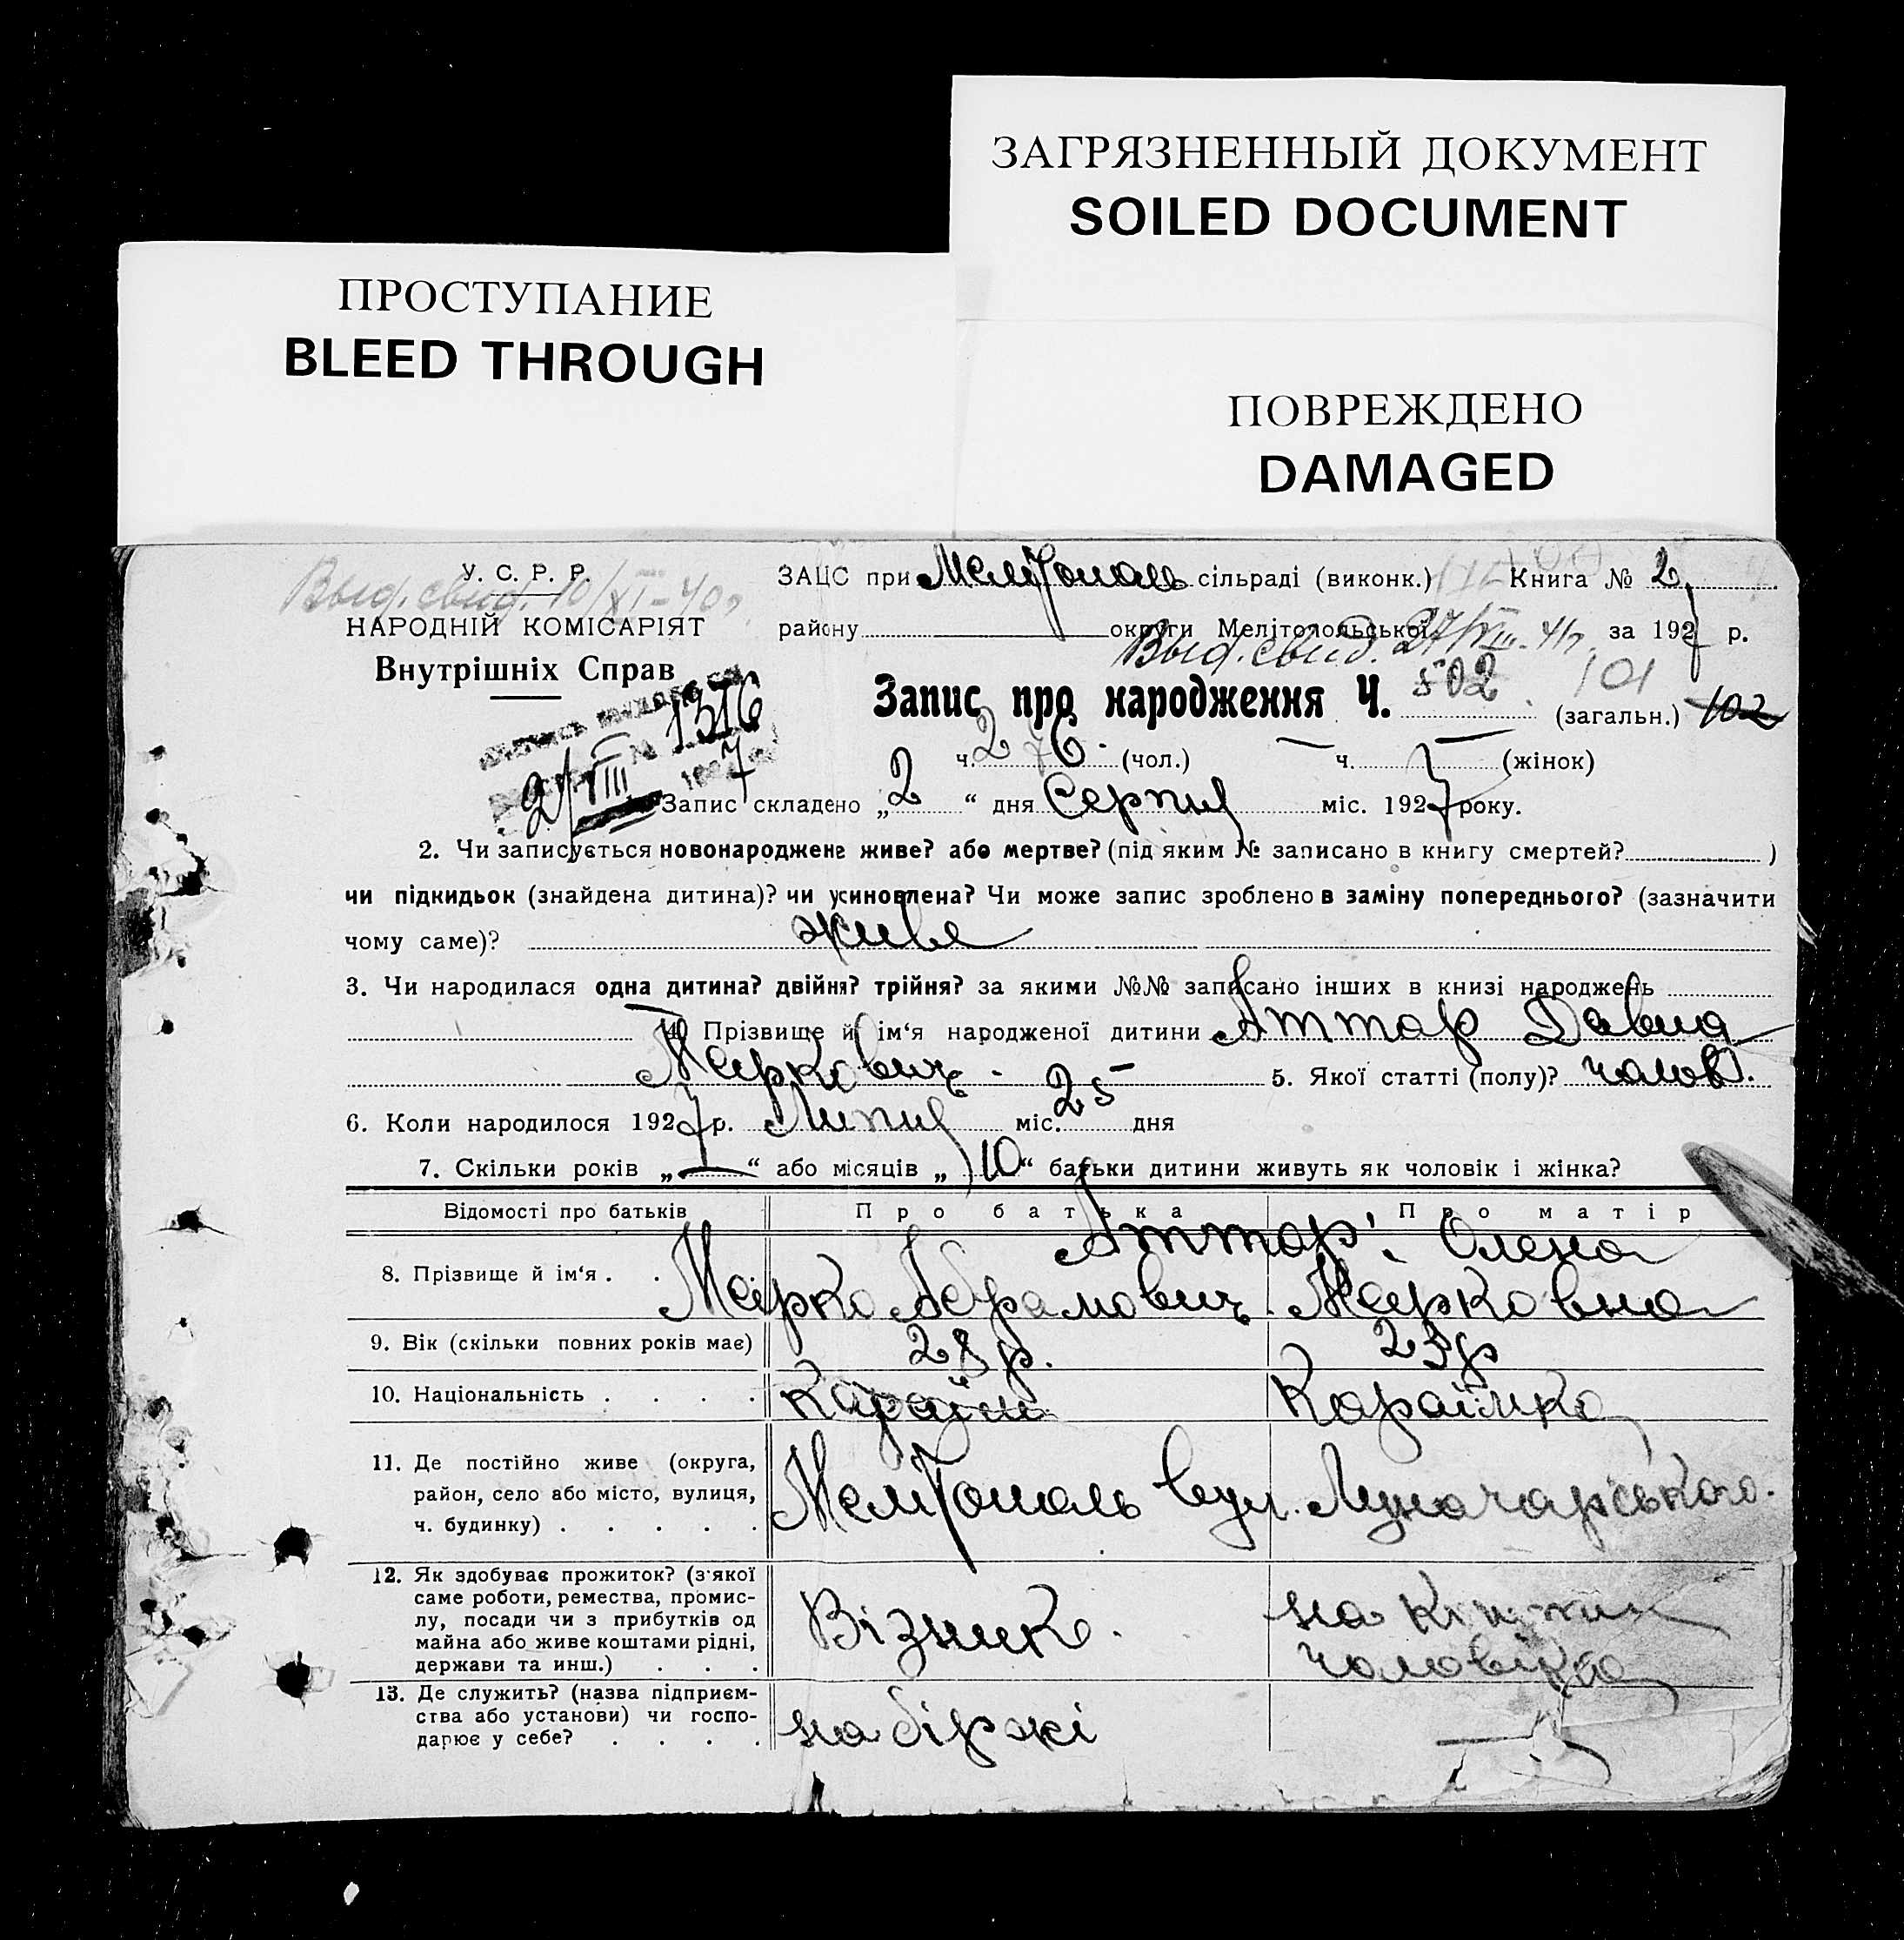 ЗАГРЯЗНЕННЫЙ ДОКУМЕНТ
SOILED DOCUMENT
ПРОСТУПАНИЕ
BLEED THROUGH
ПОВРЕЖДЕНО
DAMAGED
Выд. свид. 10/XI-40г.
У. С. Р. Р.
НАРОДНІЙ КОМІСАРІЯТ
Внутрішніх Справ
1376
2/VIII 1927
ЗАЦС при Мелітополь сільраді (виконк.) Книга № 2
району округи Мелітопольської за 1927 р.
Выд. свид. 27/VIII-41г.
Запис про народження Ч. 502 (загальн.) 101 102
ч. 276 (чол.) ч. — (жінок)
Запис складено „2“ дня Серпня міс. 1927 року.
2. Чи записується новонароджене живе? або мертве? (під яким № записано в книгу смертей? )
чи підкидьок (знайдена дитина)? чи усиновлена? Чи може запис зроблено в заміну попереднього? (зазначити
чому саме)? живе
3. Чи народилася одна дитина? двійня? трійня? за якими №№ записано інших в книзі народжень
4. Прізвище й ім‘я народженої дитини Аттар Давид
Маркович. 5. Якої статті (полу)? чолов.
6. Коли народилося 1927 р. Липня міс. 25 дня
7. Скільки років „—“ або місяців „10“ батьки дитини живуть як чоловік і жінка?
Відомості про батьків Про батька Про матір
8. Прізвище й ім‘я . . Аттар: Олена
Марко Абрамович. Марковна
9. Вік (скільки повних років має) 28 р. 23 р
10. Національність . . . . Караїм Караїмка
11. Де постійно живе (округа,
район, село або місто, вулиця,
ч. будинку) . . . . . Мелітополь вул. Луначарського.
12. Як здобуває прожиток? (з'якої
саме роботи, ремества, промис-
лу, посади чи з прибутків од
майна або живе коштами рідні,
держави та инш.) . . . Візник. на
чоловіка
13. Де служить? (назва підприєм-
ства або установи) чи госпо-
дарює у себе? . . . . на біржі